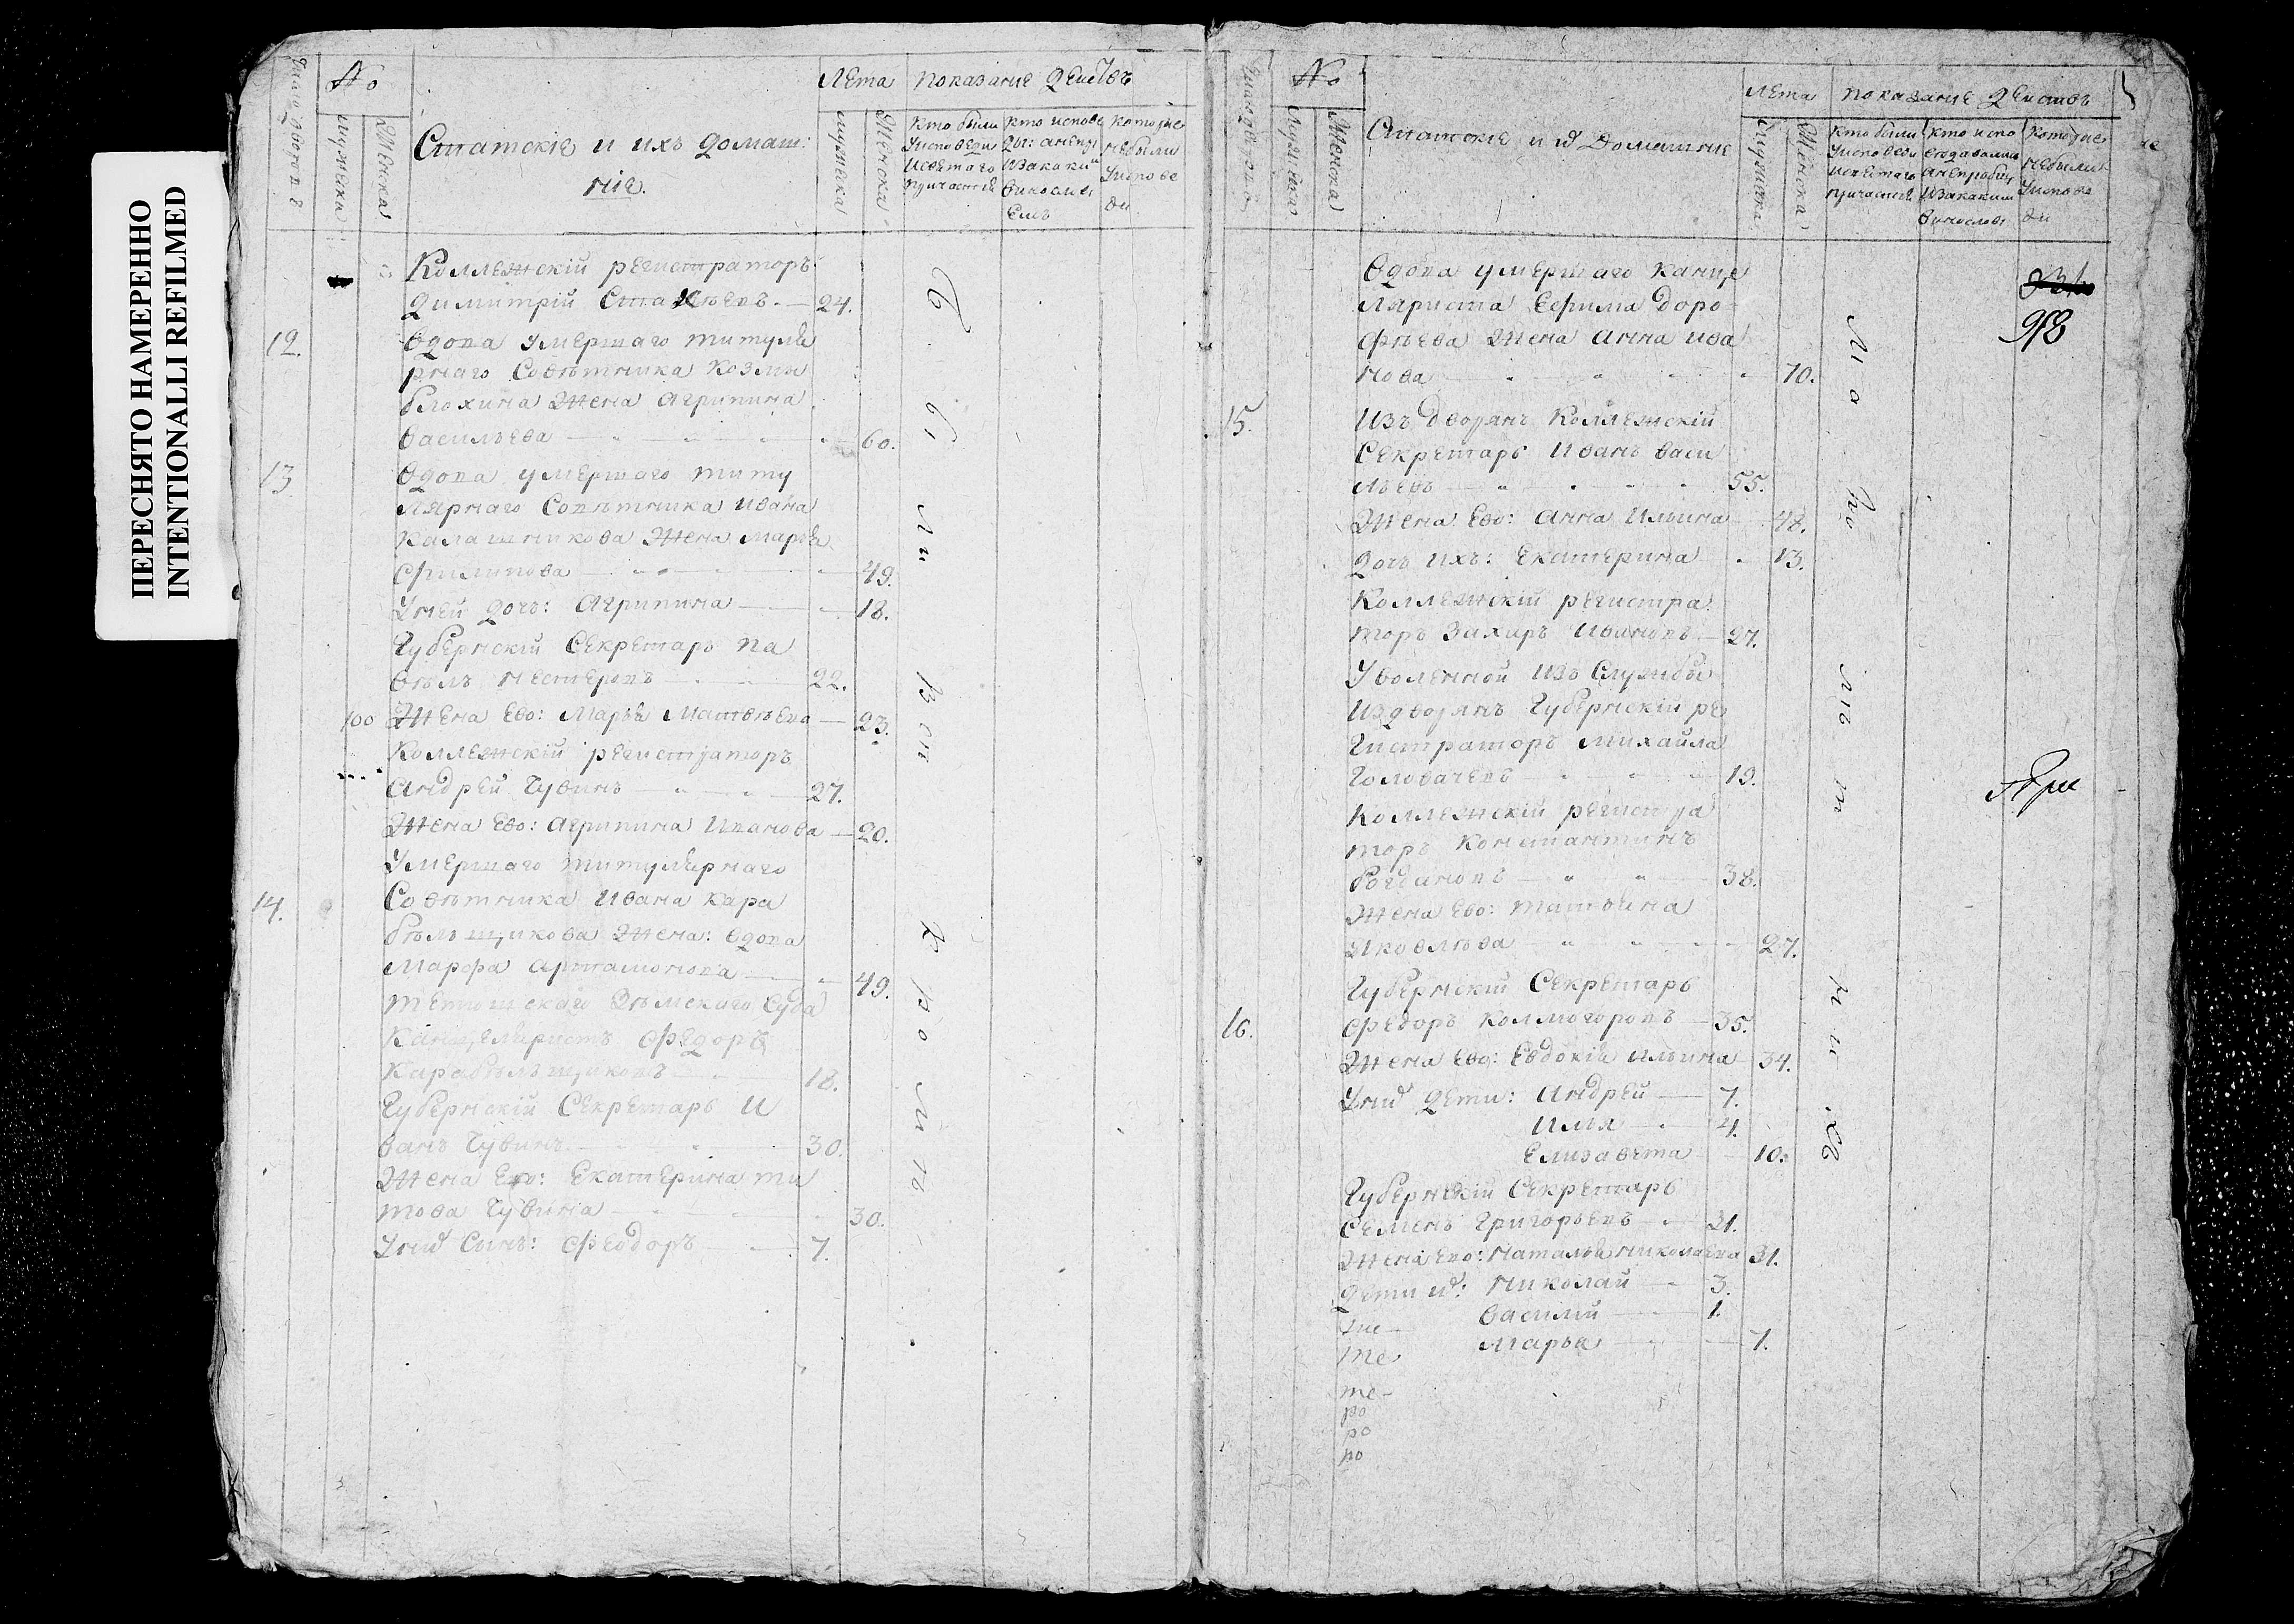 ПЕРЕСНЯТО НАМЕРЕННО
INTENTIONALLI REFILMED
No
Лета
показание действъ
Число дворовъ
мужеска
Женска
Статскіе и ихъ домаш:
ніе.
мужеска
Женска
кто были
у исповеди
и святаго
причастія
кто испове
которые
не были
у испове
ди
Коллежскій регистраторъ
Димитрій 24.
12.
вдова умершаго титуля
рнаго Советника Козмы
блохина Жена Агрипина
васильева 60.
13
вдова умершаго титу
лярнаго Советника ивана
калашникова Жена Марья
филипова 49.
У ней дочь: Агрипина 18.
Губернскій Секретарь па
вѣлъ нестеровъ 22.
100 Жена Ево: Марья Матвѣева 23.
Коллежскій регистраторъ
Андрей Губинъ 27.
Жена Ево: Агрипина Иванова 20.
Умершаго титулярнаго
14.
Советника Ивана Кара
бѣльщикова Жена: вдова
Марфа Артамонова 49.
земскаго суда
Канцеляристъ федоръ
Карабѣльщиковъ 18.
Губернскій Секретарь И
ванъ Губинъ 30.
Жена Ево: Екатерина ти
това Губина 30.
У них Сынъ: феодоръ 7.
No
Лета
показание действъ
мужеска
Женска
Статские и их Домашние
мужеска
Женска
кто были
у исповеди
и святаго
причастія
кто испо
ведавались
которые
не были
у испове
ди
Вдова умершаго канце
ляриста Ефима Доро
фѣева Жена Анна ива
нова 70.
98
15.
Изъ дворянъ Коллежскій
Секретарь Иванъ васи
льевъ 55.
Жена Ево: Анна Ильина 48.
Дочь ихъ: Екатерина 13.
Коллежскій регистра
торъ Захаръ Ивановъ 27.
Уволенной изъ Службы
Из дворянъ Губернскій ре
гистраторъ михайла
Головачевъ 19.
Коллежскій регистра
торъ Константинъ
38.
Жена Ево: Татьяна
Яковлева 27.
Губернскій Секретарь
16.
федоръ Колмогоровъ 35.
Жена Ево: Евдокия ильина 34.
У них дети: Андрей 7.
Илия 4.
Елизавета 10.
Губернскій Секретарь
Семенъ Григорьевъ 31.
Жена Ево: Наталья николаева 31.
дети их: Николай 3.
василий 1.
Марья 7.
те
ро
ро
по